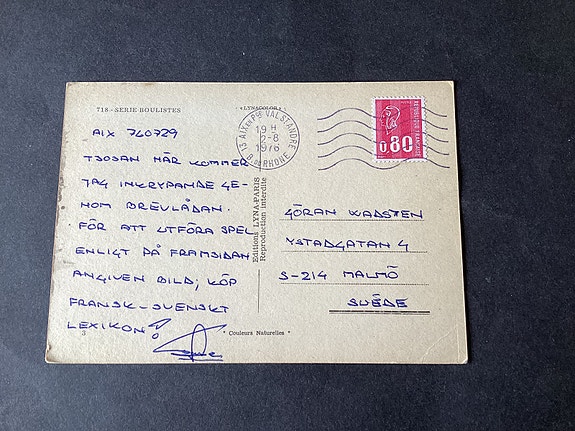 718 - SERIE BOULISTES
" LYNACOLOR "
AIX 760729
TJOSAN HÄR KOMMER
JAG INKRYPANDE GE-
NOM BREVLÅDAN.
FÖR ATT UTFÖRA SPEL
ENLIGT PÅ FRAMSIDAN
ANGIVEN BILD, KÖP
FRANSK-SVENSKT
LEXIKON!
3
" Couleurs Naturelles "
Editions LYNA-PARIS
Reproduction interdite
13 AIX EN PCE VAL ST ANDRE
19 H
2-8
1976
B. DU RHONE
REPUBLIQUE FRANCAISE
0.80
GÖRAN WADSTEN
YSTADGATAN 4
S-214 MALMÖ
SUÈDE